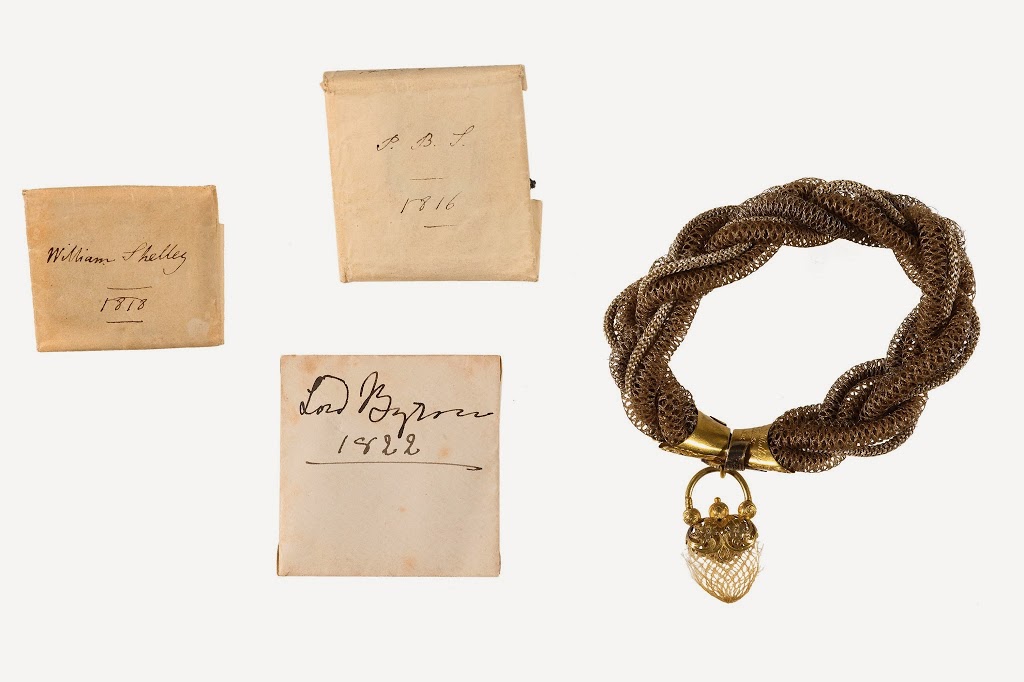 William Shelley
1818
P. B. S.
1816
Lord Byron
1822